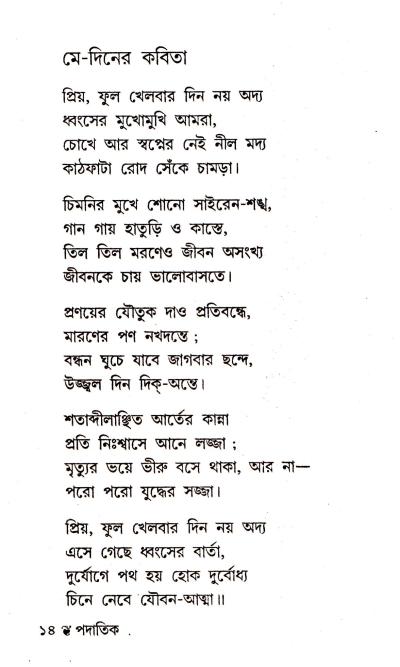 মে-দিনের কবিতা
প্রিয়, ফুল খেলবার দিন নয় অদ্য
ধ্বংসের মুখোমুখি আমরা,
চোখে আর স্বপ্নের নেই নীল মদ্য
কাঠফাটা রোদ সেঁকে চামড়া।
চিমনির মুখে শোনো সাইরেন-শঙ্খ,
গান গায় হাতুড়ি ও কাস্তে,
তিল তিল মরণেও জীবন অসংখ্য
জীবনকে চায় ভালোবাসতে।
প্রণয়ের যৌতুক দাও প্রতিবন্ধে,
মারণের পণ নখদন্তে ;
বন্ধন ঘুচে যাবে জাগবার ছন্দে,
উজ্জ্বল দিন দিক্-অন্তে।
শতাব্দীলাঞ্ছিত আর্তের কান্না
প্রতি নিঃশ্বাসে আনে লজ্জা ;
মৃত্যুর ভয়ে ভীরু বসে থাকা, আর না—
পরো পরো যুদ্ধের সজ্জা।
প্রিয়, ফুল খেলবার দিন নয় অদ্য
এসে গেছে ধ্বংসের বার্তা,
দুর্যোগে পথ হয় হোক দুর্বোধ্য
চিনে নেবে যৌবন-আত্মা॥
১৪ পদাতিক